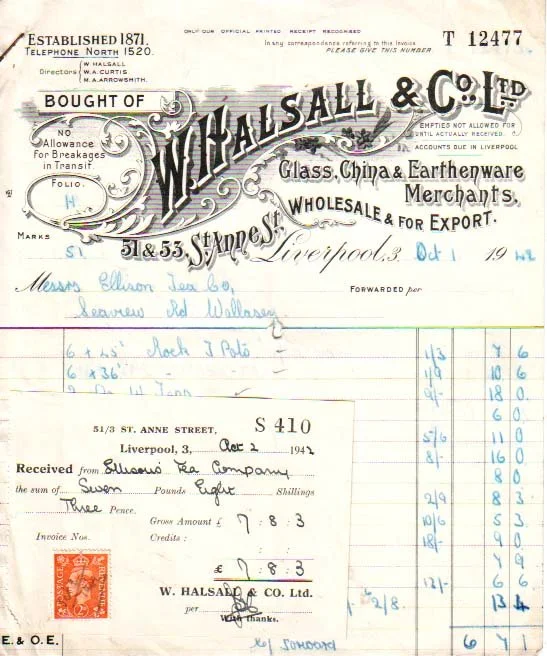 ONLY OUR OFFICIAL PRINTED RECEIPT RECOGNISED
ESTABLISHED 1871.
TELEPHONE NORTH 1520.
In any correspondence referring to this Invoice
PLEASE GIVE THIS NUMBER
T 12477
Directors
W. HALSALL
W. A. CURTIS
M. A. ARROWSMITH.
BOUGHT OF
W. HALSALL & CO. LTD
NO
Allowance
For Breakages
in Transit.
EMPTIES NOT ALLOWED FOR
UNTIL ACTUALLY RECEIVED.
ACCOUNTS DUE IN LIVERPOOL
Glass, China & Earthenware
Merchants.
WHOLESALE & FOR EXPORT.
FOLIO.
H
MARKS
51
51 & 53, St. Anne St.
Liverpool, 3. Oct 1 1942
Messrs Ellison Tea Co,
FORWARDED per
Seaview Rd Wallasey
6 45 1/3 7 6
6 × 36 1/9 10 6
9/- 18 0
6 0
5/6 11 0
8/- 16 0
8 0
2/9 8 3
10/6 5 3
18/- 9 0
7 9
12/- 6 6
2/8. 13 4
6 7 1
51/3 ST. ANNE STREET,
S 410
Liverpool, 3, Oct 2 1942
Received from Ellisons Tea Company
the sum of Seven Pounds Eight Shillings
Three Pence.
Gross Amount £ 7 : 8 : 3
Invoice Nos. Credits :
£ 7 : 8 : 3
POSTAGE REVENUE
W. HALSALL & CO. Ltd.
per
With thanks.
E. & O.E.